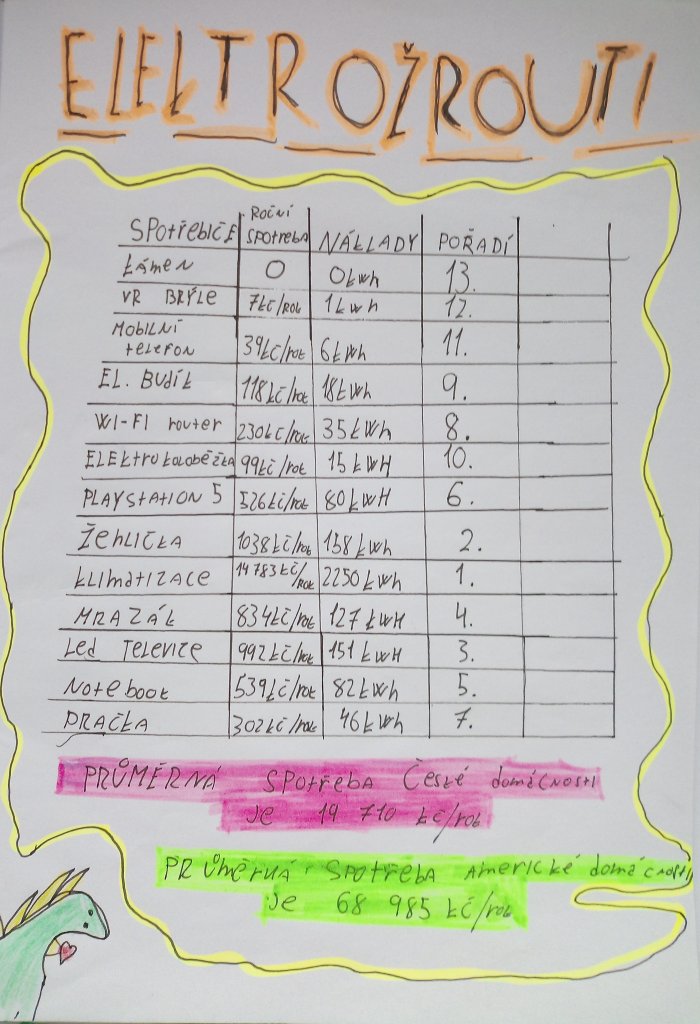 ELEKTROŽROUTI
SPOTŘEBIČE ROČNÍ SPOTŘEBA NÁKLADY POŘADÍ
KÁMEN 0 0kWh 13.
VR BRÝLE 7kč/rok 1kWh 12.
MOBILNÍ telefon 39kč/rok 6kWh 11.
EL. BUDÍK 118kč/rok 18kWh 9.
WI-FI router 230kč/rok 35kWh 8.
ELEKtrokoloběžka 99kč/rok 15kWH 10.
PLAYSTATION 5 526kč/rok 80kWH 6.
ŽEHLIČKA 1038kč/rok 158kWh 2.
klimatizace 14783kč/rok 2250kWh 1.
MRAZÁK 834kč/rok 127kWH 4.
Led TELEVIZE 992kč/rok 151kWH 3.
Notebook 539kč/rok 82kWh 5.
PRAČKA 302kč/rok 46kWh 7.
PRŮMĚRNÁ SPOTŘEBA České domácnosti
je 19 710 kč/rok
PRŮMĚRNÁ SPOTŘEBA americké domácnosti
je 68 985 kč/rok